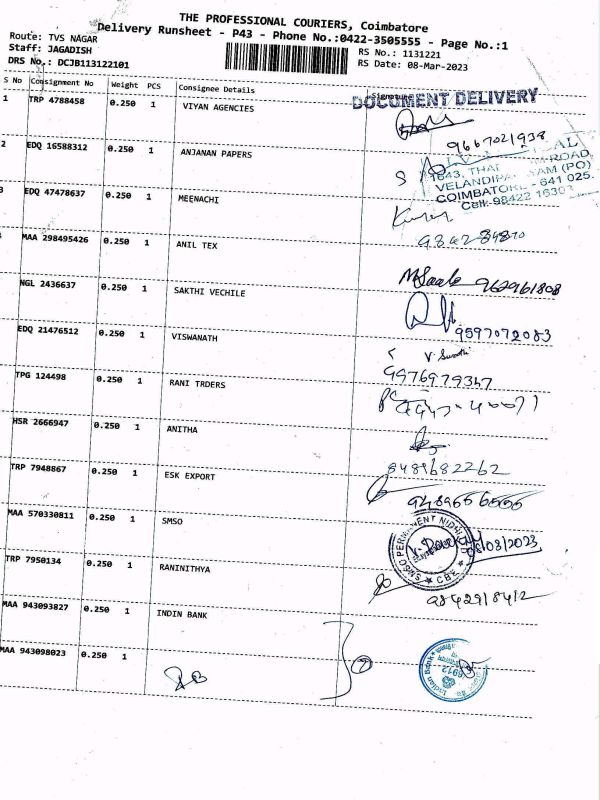 THE PROFESSIONAL COURIERS, Coimbatore
Delivery Runsheet - P43 - Phone No.:0422-3505555 - Page No.:1
Route: TVS NAGAR
Staff: JAGADISH
DRS No.: DCJB113122101
RS No.: 1131221
RS Date: 08-Mar-2023
S No Consignment No Weight PCS Consignee Details Signature
DOCUMENT DELIVERY
1 TRP 4788458 0.250 1 VIYAN AGENCIES
9667021938
2 EDQ 16588312 0.250 1 ANJANAN PAPERS
1643, ROAD,
VELANDIPALAYAM (PO)
COIMBATORE - 641 025.
Cell: 98422 16303
3 EDQ 47478637 0.250 1 MEENACHI
Kumar
MAA 298495426 0.250 1 ANIL TEX
9629161808
NGL 2436637 0.250 1 SAKTHI VECHILE
9597072083
EDQ 21476512 0.250 1 VISWANATH
9976979347
TPG 124498 0.250 1 RANI TRDERS
HSR 2666947 0.250 1 ANITHA
8489682262
TRP 7948867 0.250 1 ESK EXPORT
MAA 570330811 0.250 1 SMSO
SMSO PERMANENT NIDHI
CBE
08/03/2023
TRP 7950134 0.250 1 RANINITHYA
9842918412
MAA 943093827 0.250 1 INDIN BANK
MAA 943098023 0.250 1
Indian Bank